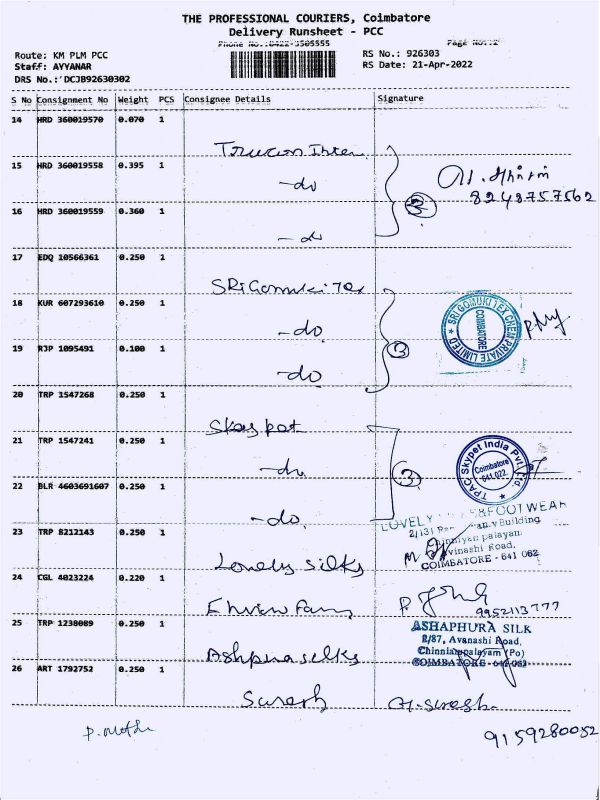 THE PROFESSIONAL COURIERS, Coimbatore
Delivery Runsheet - PCC
Phone No.:0422-3505555 Page No.:2
Route: KM PLM PCC RS No.: 926303
Staff: AYYANAR RS Date: 21-Apr-2022
DRS No.: DCJB92630302
S No Consignment No Weight PCS Consignee Details Signature
14 HRD 360019570 0.070 1
15 HRD 360019558 0.395 1 -do
8248757562
16 HRD 360019559 0.360 1 3
-do
17 EDQ 10566361 0.250 1
SRi Gomuki Tex
18 KUR 607293610 0.250 1 -do SRI GOMUKI TEX CHEM PRIVATE LIMITED COIMBATORE
19 RJP 1095491 0.100 1 3
-do
20 TRP 1547268 0.250 1
Skaypat
21 TRP 1547241 0.250 1 -do TPAC Skypet India Pvt. Ltd. Coimbatore 641 022.
22 BLR 4603691607 0.250 1 3
-do LOVELY &FOOTWEAR
2/131 Building
23 TRP 8212143 0.250 1 palayam
Avinashi Road,
Lovely silks COIMBATORE - 641 062
24 CGL 4023224 0.220 1
9952113777
25 TRP 1238089 0.250 1 ASHAPHURA SILK
2/87, Avanashi Road,
Chinniampalayam (Po)
Ashpura silks COIMBATORE - 641 062
26 ART 1792752 0.250 1
Suresh A. Suresh
9159280052